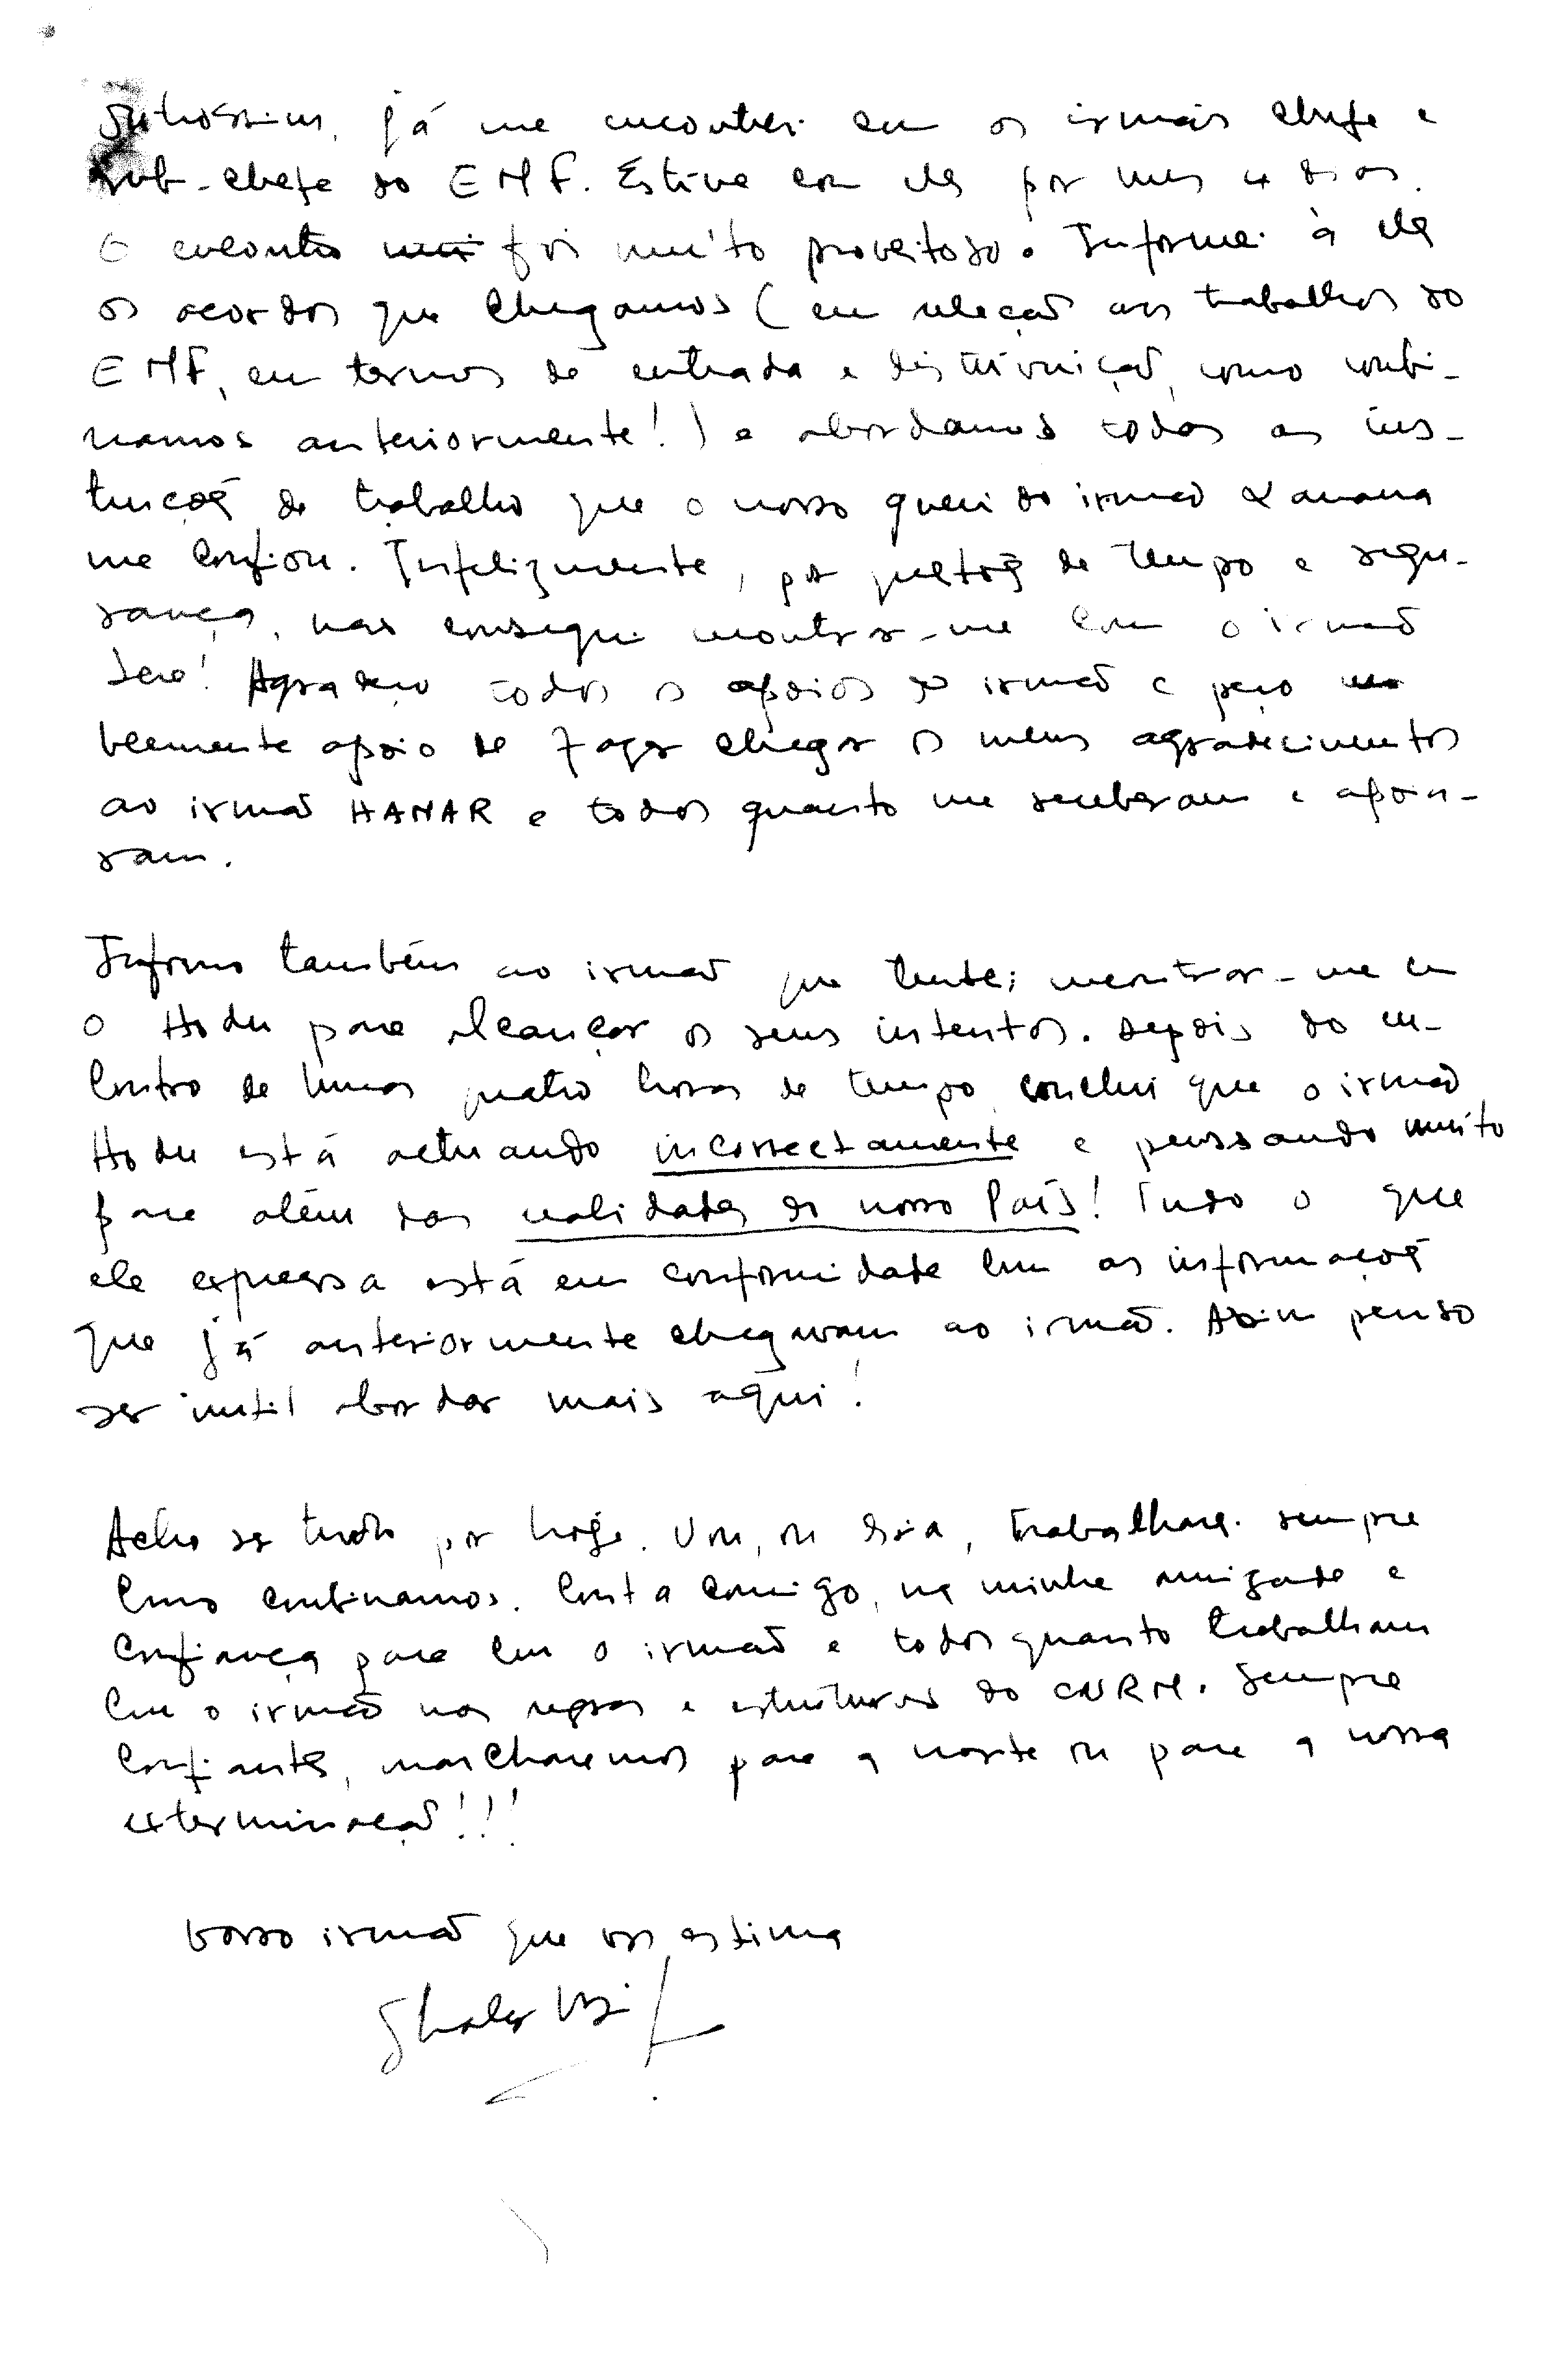 já me encontrei com os irmãos chefe e
sub-chefe do EMF. Estive com eles por uns 4 dias.
O encontro foi muito proveitoso. Informei à eles
os acordos que chegamos (em relação aos trabalhos do
EMF, em termos de entrada e como combi-
namos anteriormente!) e abordamos todas as ins-
truções de trabalho que o nosso querido irmão
me confiou. Infelizmente, por questões de tempo e segu-
rança, não consegui encontrar-me com o irmão
Agradeço todos os apoios do irmão e peço
veemente apoio de fazer chegar os meus agradecimentos
ao irmão HANAR e todos quanto me receberam e apoia-
ram.
Informo também ao irmão que tentei encontrar-me com
o Hodu para alcançar os seus intentos. Depois do en-
contro de umas quatro horas de tempo conclui que o irmão
Hodu está actuando incorrectamente e penssando muito
para além das realidades do nosso País! Tudo o que
ele expressa está em conformidade com as informações
que já anteriormente chegaram ao irmão. Assim penso
ser inutil abordar mais aqui!
Acho ser tudo por hoje. Vou, ou seja, trabalharei sempre
como combinamos. Conta comigo, na minha amizade e
confiança para com o irmão e todos quanto trabalham
com o irmão nas regras e estruturas do CNRM. Sempre
confiantes, marcharemos para a morte ou para a nossa
exterminação!!!
Vosso irmão que vos estima